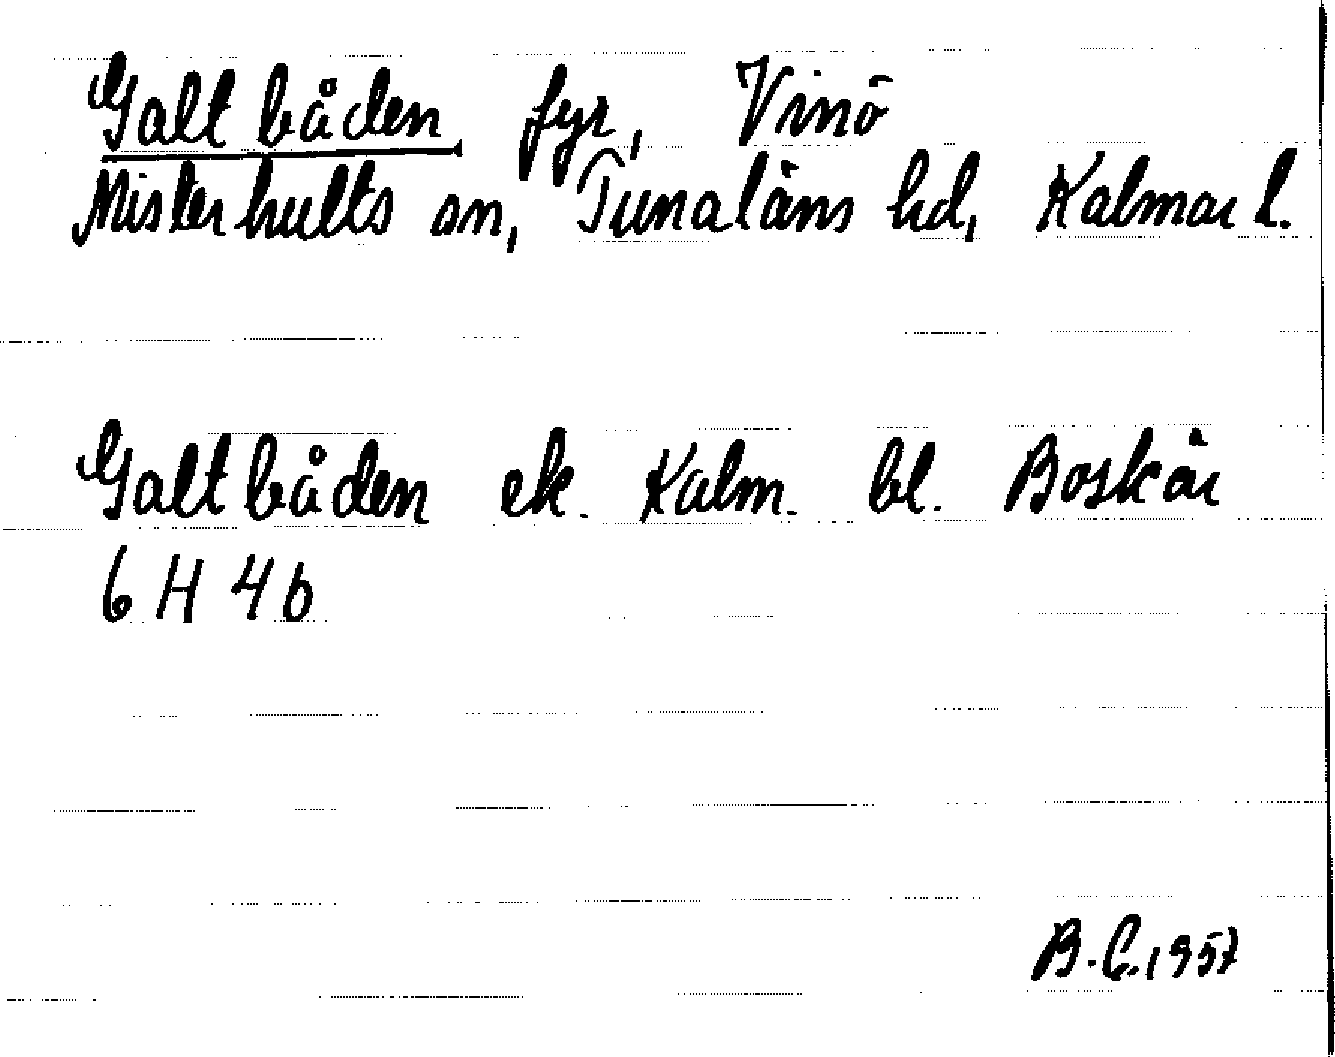 Galtbåden, fyr, Vinö
Misterhults sn, Tunaläns hd, Kalmar l.
Galtbåden ek. Kalm. bl. Boskär
6 H 4 b
B.C. 1957